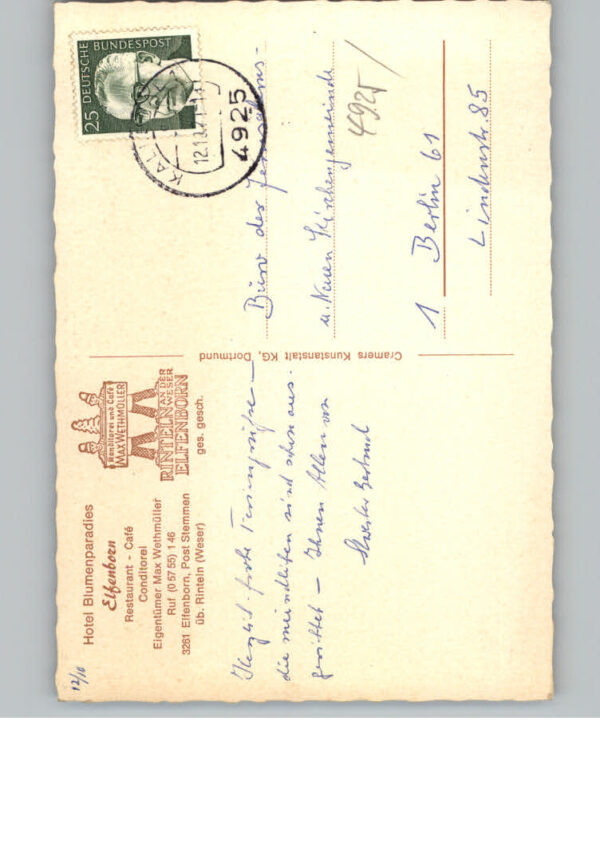 12/10
Hotel Blumenparadies
Elfenborn
Restaurant - Café
Conditorei
Eigentümer Max Wethmüller
Ruf (0 57 55) 1 46
3261 Elfenborn, Post Stemmen
üb. Rinteln (Weser)
Konditorei und Café
MAX WETHMÜLLER
RINTELN AN DER WESER
ELFENBORN
ges. gesch.
Herzlich frohe
die mündlichen sind schon aus-
gerichtet – Ihnen Allen von
Schwester Gertrud
Cramers Kunstanstalt KG, Dortmund
DEUTSCHE BUNDESPOST
25
4925
12.1
4925
Büro der Jerusalems-
u. Neuen Kirchengemeinde
1 Berlin 61
Lindenstr. 85